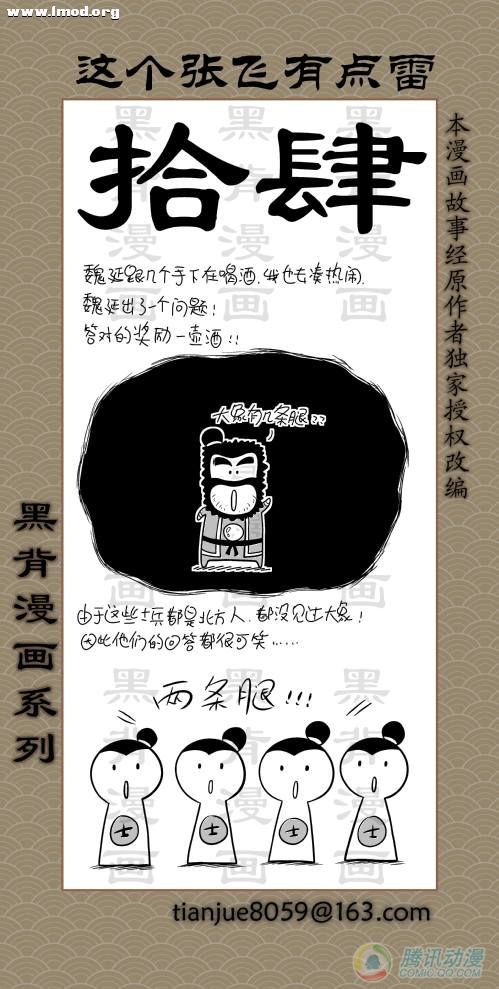 www.lmod.org
这个张飞有点雷
拾肆
本漫画故事经原作者独家授权改编
魏延跟几个手下在喝酒,我也去凑热闹.
魏延出了一个问题!
答对的奖励一壶酒!!
大象有几条腿??
由于这些士兵都是北方人.都没见过大象!
因此他们的回答都很可笑……
两条腿!!!
士
士
士
士
黑背漫画系列
tianjue8059@163.com
腾讯动漫
COMIC.QQ.COM
黑背漫画
黑背漫画
黑背漫画
黑背漫画
黑背漫画
黑背漫画